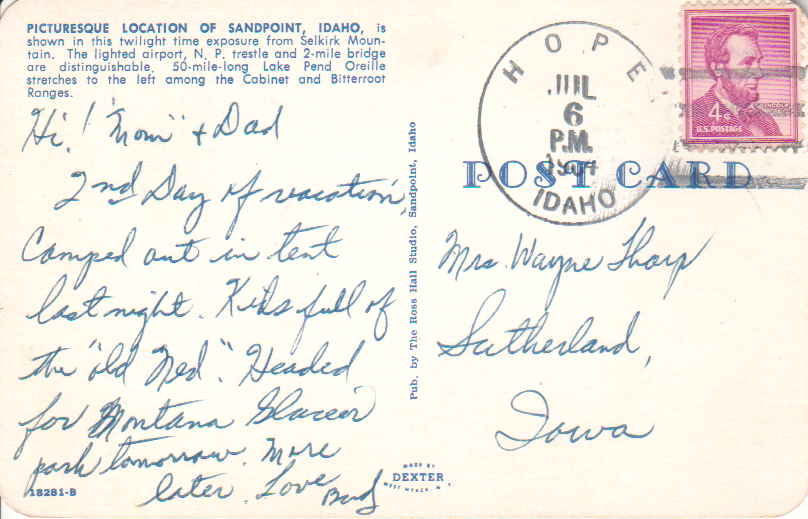 PICTURESQUE LOCATION OF SANDPOINT, IDAHO, is
shown in this twilight time exposure from Selkirk Moun-
tain. The lighted airport, N. P. trestle and 2-mile bridge
are distinguishable. 50-mile-long Lake Pend Oreille
stretches to the left among the Cabinet and Bitterroot
Ranges.
Hi! "Mom" + Dad
2nd Day of vacation,
Camped out in tent
last night. Kids full of
the "old Ned". Headed
for Montana Glacier
park tomorrow. More
later. Love Bud
18281-B
Pub. by The Ross Hall Studio, Sandpoint, Idaho
MADE BY
DEXTER
WEST NYACK, N.Y.
HOPE
JUL
6
P.M.
IDAHO
4¢
LINCOLN
U.S. POSTAGE
POST CARD
Mrs. Wayne Tharp
Sutherland,
Iowa